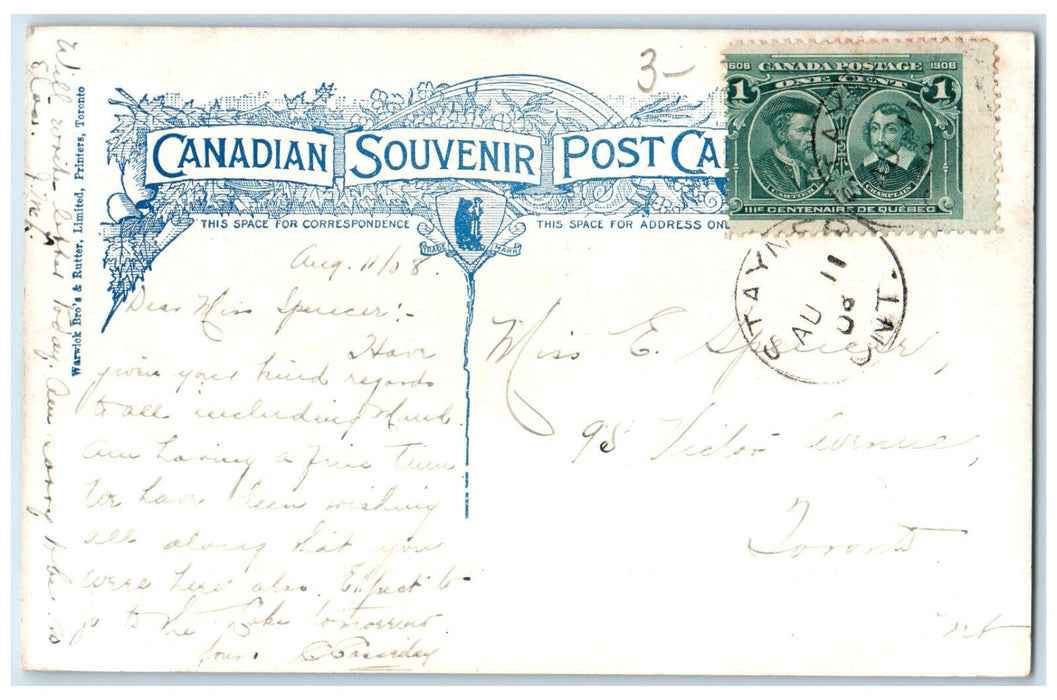 3-
CANADIAN SOUVENIR POST CA
THIS SPACE FOR CORRESPONDENCE
THIS SPACE FOR ADDRESS ON
TRADE MARK
Warwick Bro's & Rutter, Limited, Printers, Toronto
608 CANADA POSTAGE 1908
1 ONE CENT 1
CARTIER CHAMPLAIN
IIIE CENTENAIRE DE QUÉBEC
STAYNER
AU 11
08
ONT.
Aug. 11/08.
Dear Miss Spencer:-
Have
given your kind regards
to all including
Am having a fine time
We have been wishing
all along that you
were here also. Expect to
go to the Lake tomorrow.
Yours
Will write letter today. Am sorry to be so
Miss E. Spencer,
98 Victor Avenue,
Toronto
Ont